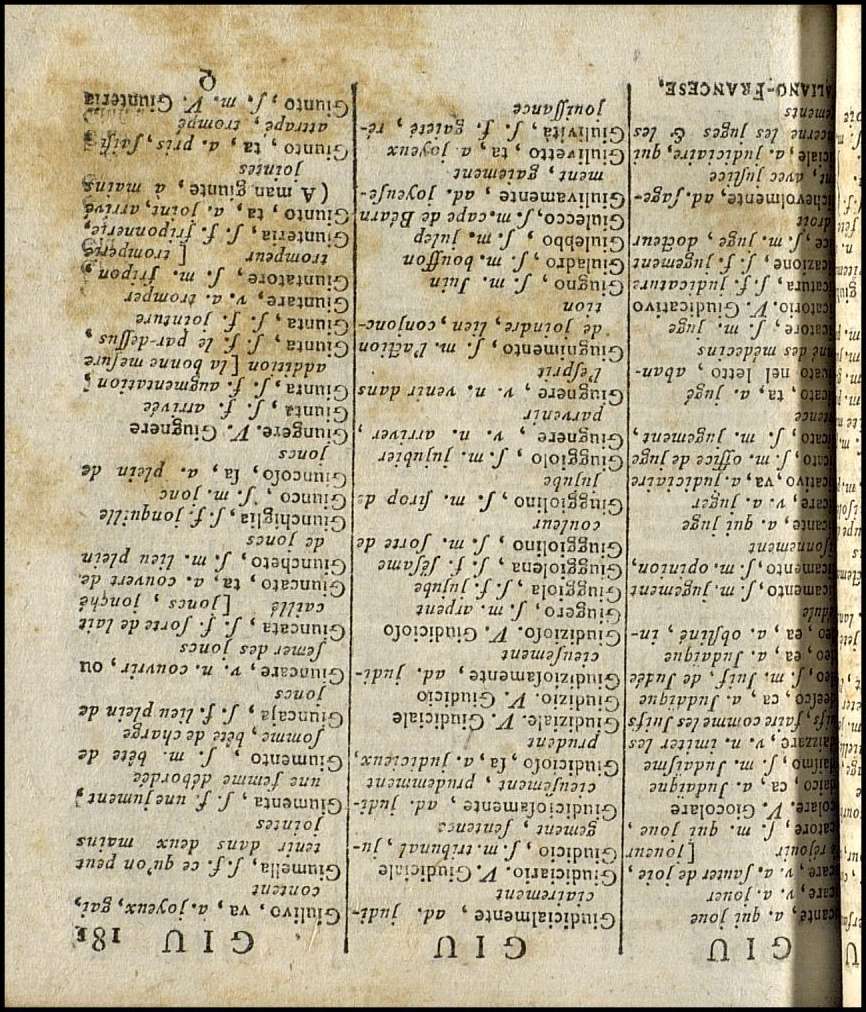 GIU
cante, a. qui joue
care, v. a. jouer
care, v. a. ſauter de joie,
réjouir [joueur
catore, ſ. m. qui joue,
colare. V. Giocolare
daico, ca, a. Judaïque
deſimo, ſ. m. Judaïſme
daizzare, v. n. imiter les
Juifs, faire comme les Juifs
deeſco, ca, a. Judaïque
deo, ſ. m. Juif, de Judée
deo, ea, a. Judaïque
deo, ea, a. obſtiné, in-
crédule
camento, ſ. m. jugement
camento, ſ. m. opinion,
ſonnement
cante, a. qui juge
care, v. a. juger
cativo, va, a. judiciaire
cato, ſ. m. office de juge
cato, ſ. m. jugement,
ſentence
cato, ta, a. jugé
cato nel letto, aban-
donné des médecins
catore, ſ. m. juge
catorio. V. Giudicativo
catura, ſ. f. judicature
cazione, ſ. f. jugement
ce, ſ. m. juge, docteur
droit
ichevolmente, ad. ſage-
ment, avec juſtice
ciale, a. judiciaire, qui
concerne les juges & les
jugements
ITALIANO-FRANCESE,
GIU
Giudicialmente, ad. judi-
clairement
Giudiciario. V. Giudiciale
Giudicio, ſ. m. tribunal, ju-
gement, ſentence
Giudicioſamente, ad. judi-
cieuſement, prudemment
Giudicioſo, ſa, a. judicieux,
prudent
Giudiziale. V. Giudiciale
Giudizio. V. Giudicio
Giudizioſamente, ad. judi-
cieuſement
Giudizioſo. V. Giudicioſo
Giugero, ſ. m. arpent
Giuggiola, ſ. f. jujube
Giuggiolena, ſ. f. ſéſame
Giuggiolino, ſ. m. ſorte de
couleur
Giuggiolino, ſ. m. ſirop de
jujube
Giuggiolo, ſ. m. jujubier
Giugnere, v. n. arriver,
parvenir
Giugnere, v. n. venir dans
l'eſprit
Giugnimento, ſ. m. l'action
de joindre, lien, conjonc-
tion
Giugno, ſ. m. Juin
Giuladro, ſ. m. bouffon
Giulebbo, ſ. m. julep
Giulecco, ſ. m. cape de Béarn
Giulivamente, ad. joyeuſe-
ment, gaiement
Giulivetto, ta, a. joyeux
Giulività, ſ. f. gaieté, ré-
jouiſſance
GIU 181
Giulivo, va, a. joyeux, gai,
content
Giumella, ſ. f. ce qu'on peut
tenir dans deux mains
jointes
Giumenta, ſ. f. une jument,
une femme débordée
Giumento, ſ. m. bête de
ſomme, bête de charge
Giuncaja, ſ. f. lieu plein de
joncs
Giuncare, v. n. couvrir, ou
ſemer des joncs
Giuncata, ſ. f. ſorte de lait
caillé [joncs, jonché
Giuncato, ta, a. couvert de
Giuncheto, ſ. m. lieu plein
de joncs
Giunchiglia, ſ. f. jonquille
Giunco, ſ. m. jonc
Giuncoſo, ſa, a. plein de
joncs
Giungere. V. Giugnere
Giunta, ſ. f. arrivée
Giunta, ſ. f. augmentation,
addition [la bonne meſure
Giunta, ſ. f. le par-deſſus,
Giunta, ſ. f. jointure
Giuntare, v. a. tromper
Giuntatore, ſ. m. fripon,
trompeur [tromperie
Giunteria, ſ. f. friponnerie,
Giunto, ta, a. joint, arrivé
(A man giunte, à mains
jointes
Giunto, ta, a. pris, ſaiſi,
attrapé, trompé
Giunto, ſ. m. V. Giunteria
Q